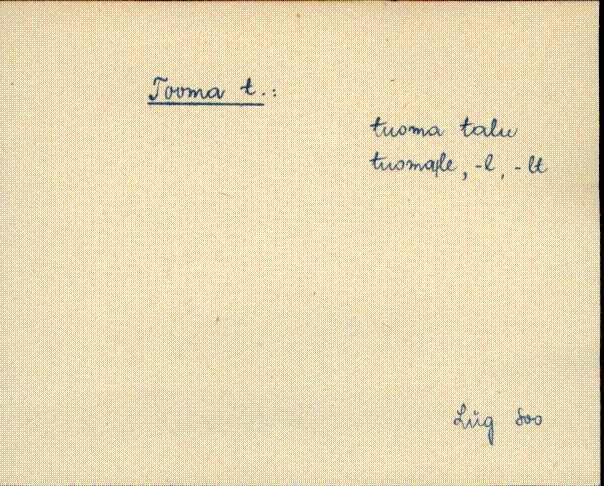 Tooma t.:
tuoma talu
tuoma|le, -l, -lt
Lüg Soo